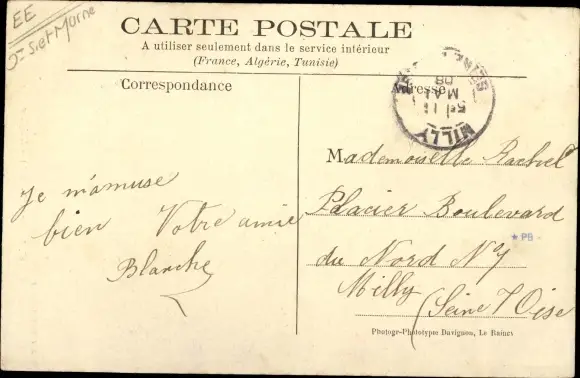 EE
Sne et Marne
CARTE POSTALE
A utiliser seulement dans le service intérieur
(France, Algérie, Tunisie)
Correspondance
Adresse
MILLY
5 11
MAI
08
Je m'amuse
bien Votre amie
Blanche
Mademoiselle Rachel
Placier Boulevard
du Nord N°7
Milly
(Seine & Oise
★ PB
Photogr-Phototypie Davignon, Le Raincy